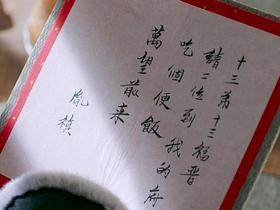 十三弟十三福晋
請二位到我的府
吃個便飯
萬望前来
胤禛